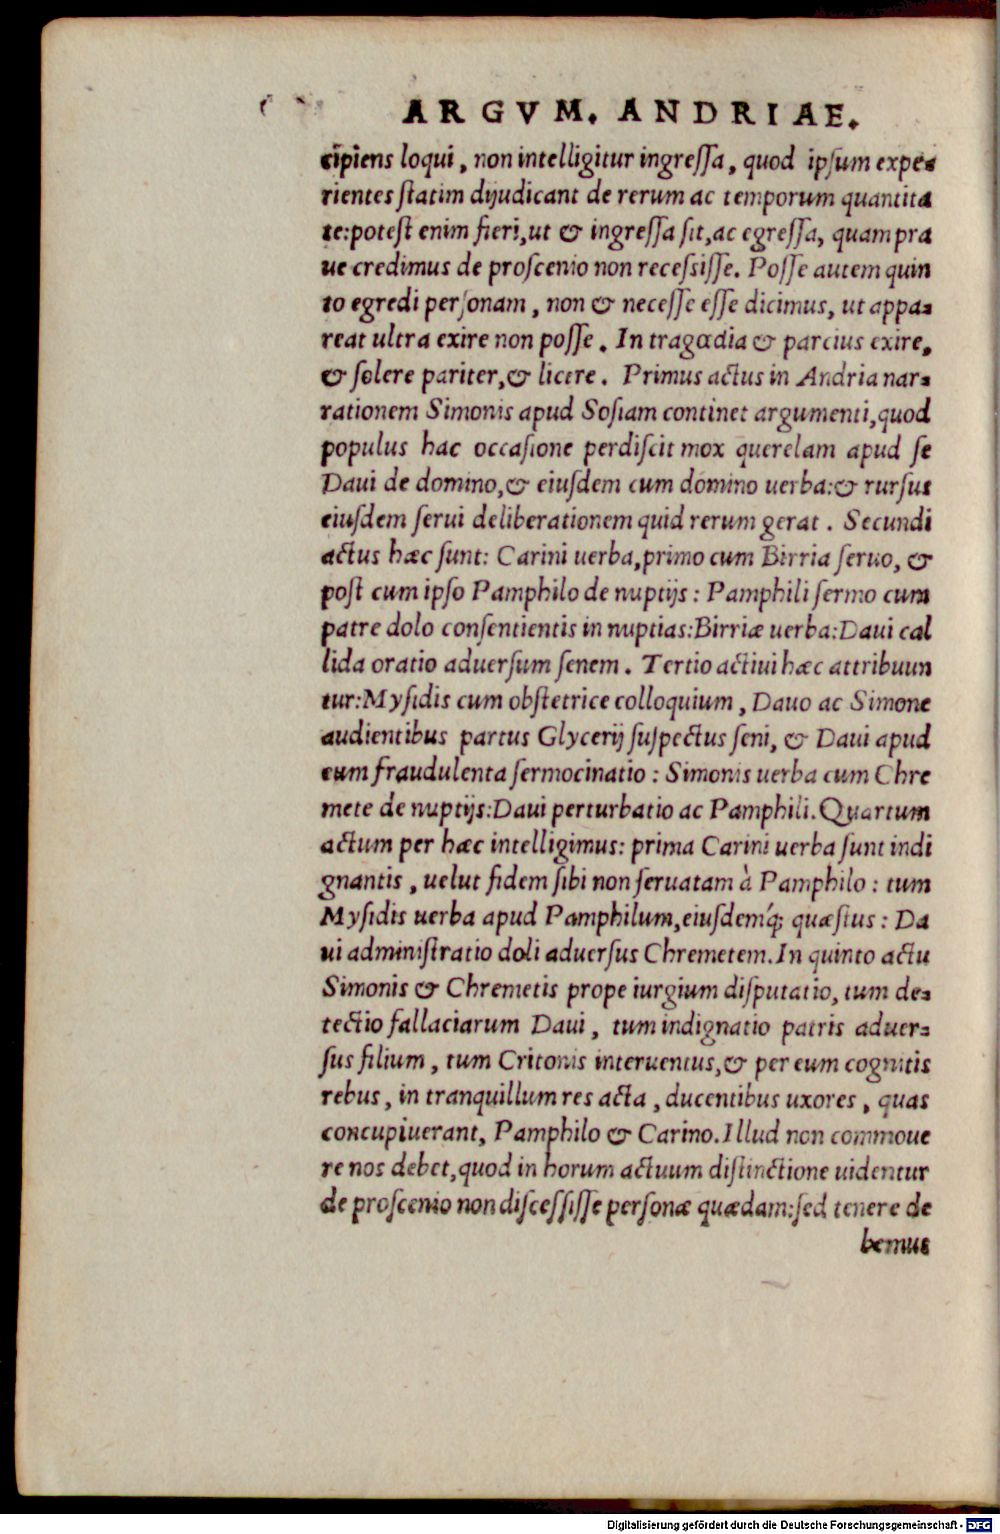 ARGVM. ANDRIAE.
cipiens loqui, non intelligitur ingreſſa, quod ipſum expe⸗
rientes ſtatim dijudicant de rerum ac temporum quantita
te:poteſt enim fieri, ut & ingreſſa ſit, ac egreſſa, quam pra
ue credimus de proſcenio non receſsiſſe. Poſſe autem quin
to egredi perſonam, non & neceſſe eſſe dicimus, ut appa⸗
reat ultra exire non poſſe. In tragœdia & parcius exire,
& ſolere pariter, & licere. Primus actus in Andria nar⸗
rationem Simonis apud Soſiam continet argumenti, quod
populus hac occaſione perdiſcit mox querelam apud ſe
Daui de domino, & eiuſdem cum domino uerba: & rurſus
eiuſdem ſerui deliberationem quid rerum gerat. Secundi
actus hæc ſunt: Carini uerba, primo cum Birria ſeruo, &
poſt cum ipſo Pamphilo de nuptijs: Pamphili ſermo cum
patre dolo conſentientis in nuptias: Birriæ uerba: Daui cal
lida oratio aduerſum ſenem. Tertio actiui hæc attribuun
tur: Myſidis cum obſtetrice colloquium, Dauo ac Simone
audientibus partus Glycerij ſuſpectus ſeni, & Daui apud
eum fraudulenta ſermocinatio: Simonis uerba cum Chre
mete de nuptijs: Daui perturbatio ac Pamphili. Quartum
actum per hæc intelligimus: prima Carini uerba ſunt indi
gnantis, uelut fidem ſibi non ſeruatam à Pamphilo: tum
Myſidis uerba apud Pamphilum, eiuſdemq́; quæſtus: Da
ui adminiſtratio doli aduerſus Chremetem. In quinto actu
Simonis & Chremetis prope iurgium diſputatio, tum de⸗
tectio fallaciarum Daui, tum indignatio patris aduer⸗
ſus filium, tum Critonis interuentus, & per eum cognitis
rebus, in tranquillum res acta, ducentibus uxores, quas
concupiuerant, Pamphilo & Carino. Illud non commoue
re nos debet, quod in horum actuum diſtinctione uidentur
de proſcenio non diſceſſiſſe perſonæ quædam: ſed tenere de
bemus
Digitalisierung gefördert durch die Deutsche Forschungsgemeinschaft - DFG